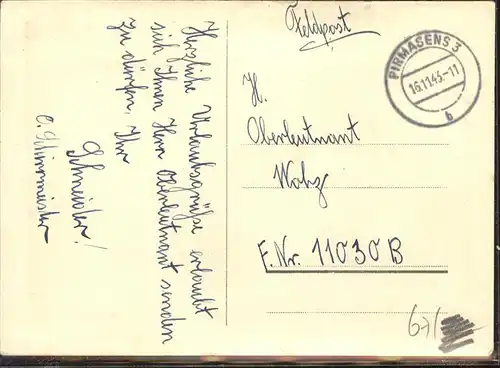 Feldpost
PIRMASENS 3
16.11.43.-11
b
H.
Oberleutnant
Wohz
F. Nr. 11030 B
67/
Herzliche Urlaubsgrüße erlaubt
sich Ihnen Herr Oberleutnant senden
zu dürfen, Ihr
Schneider!